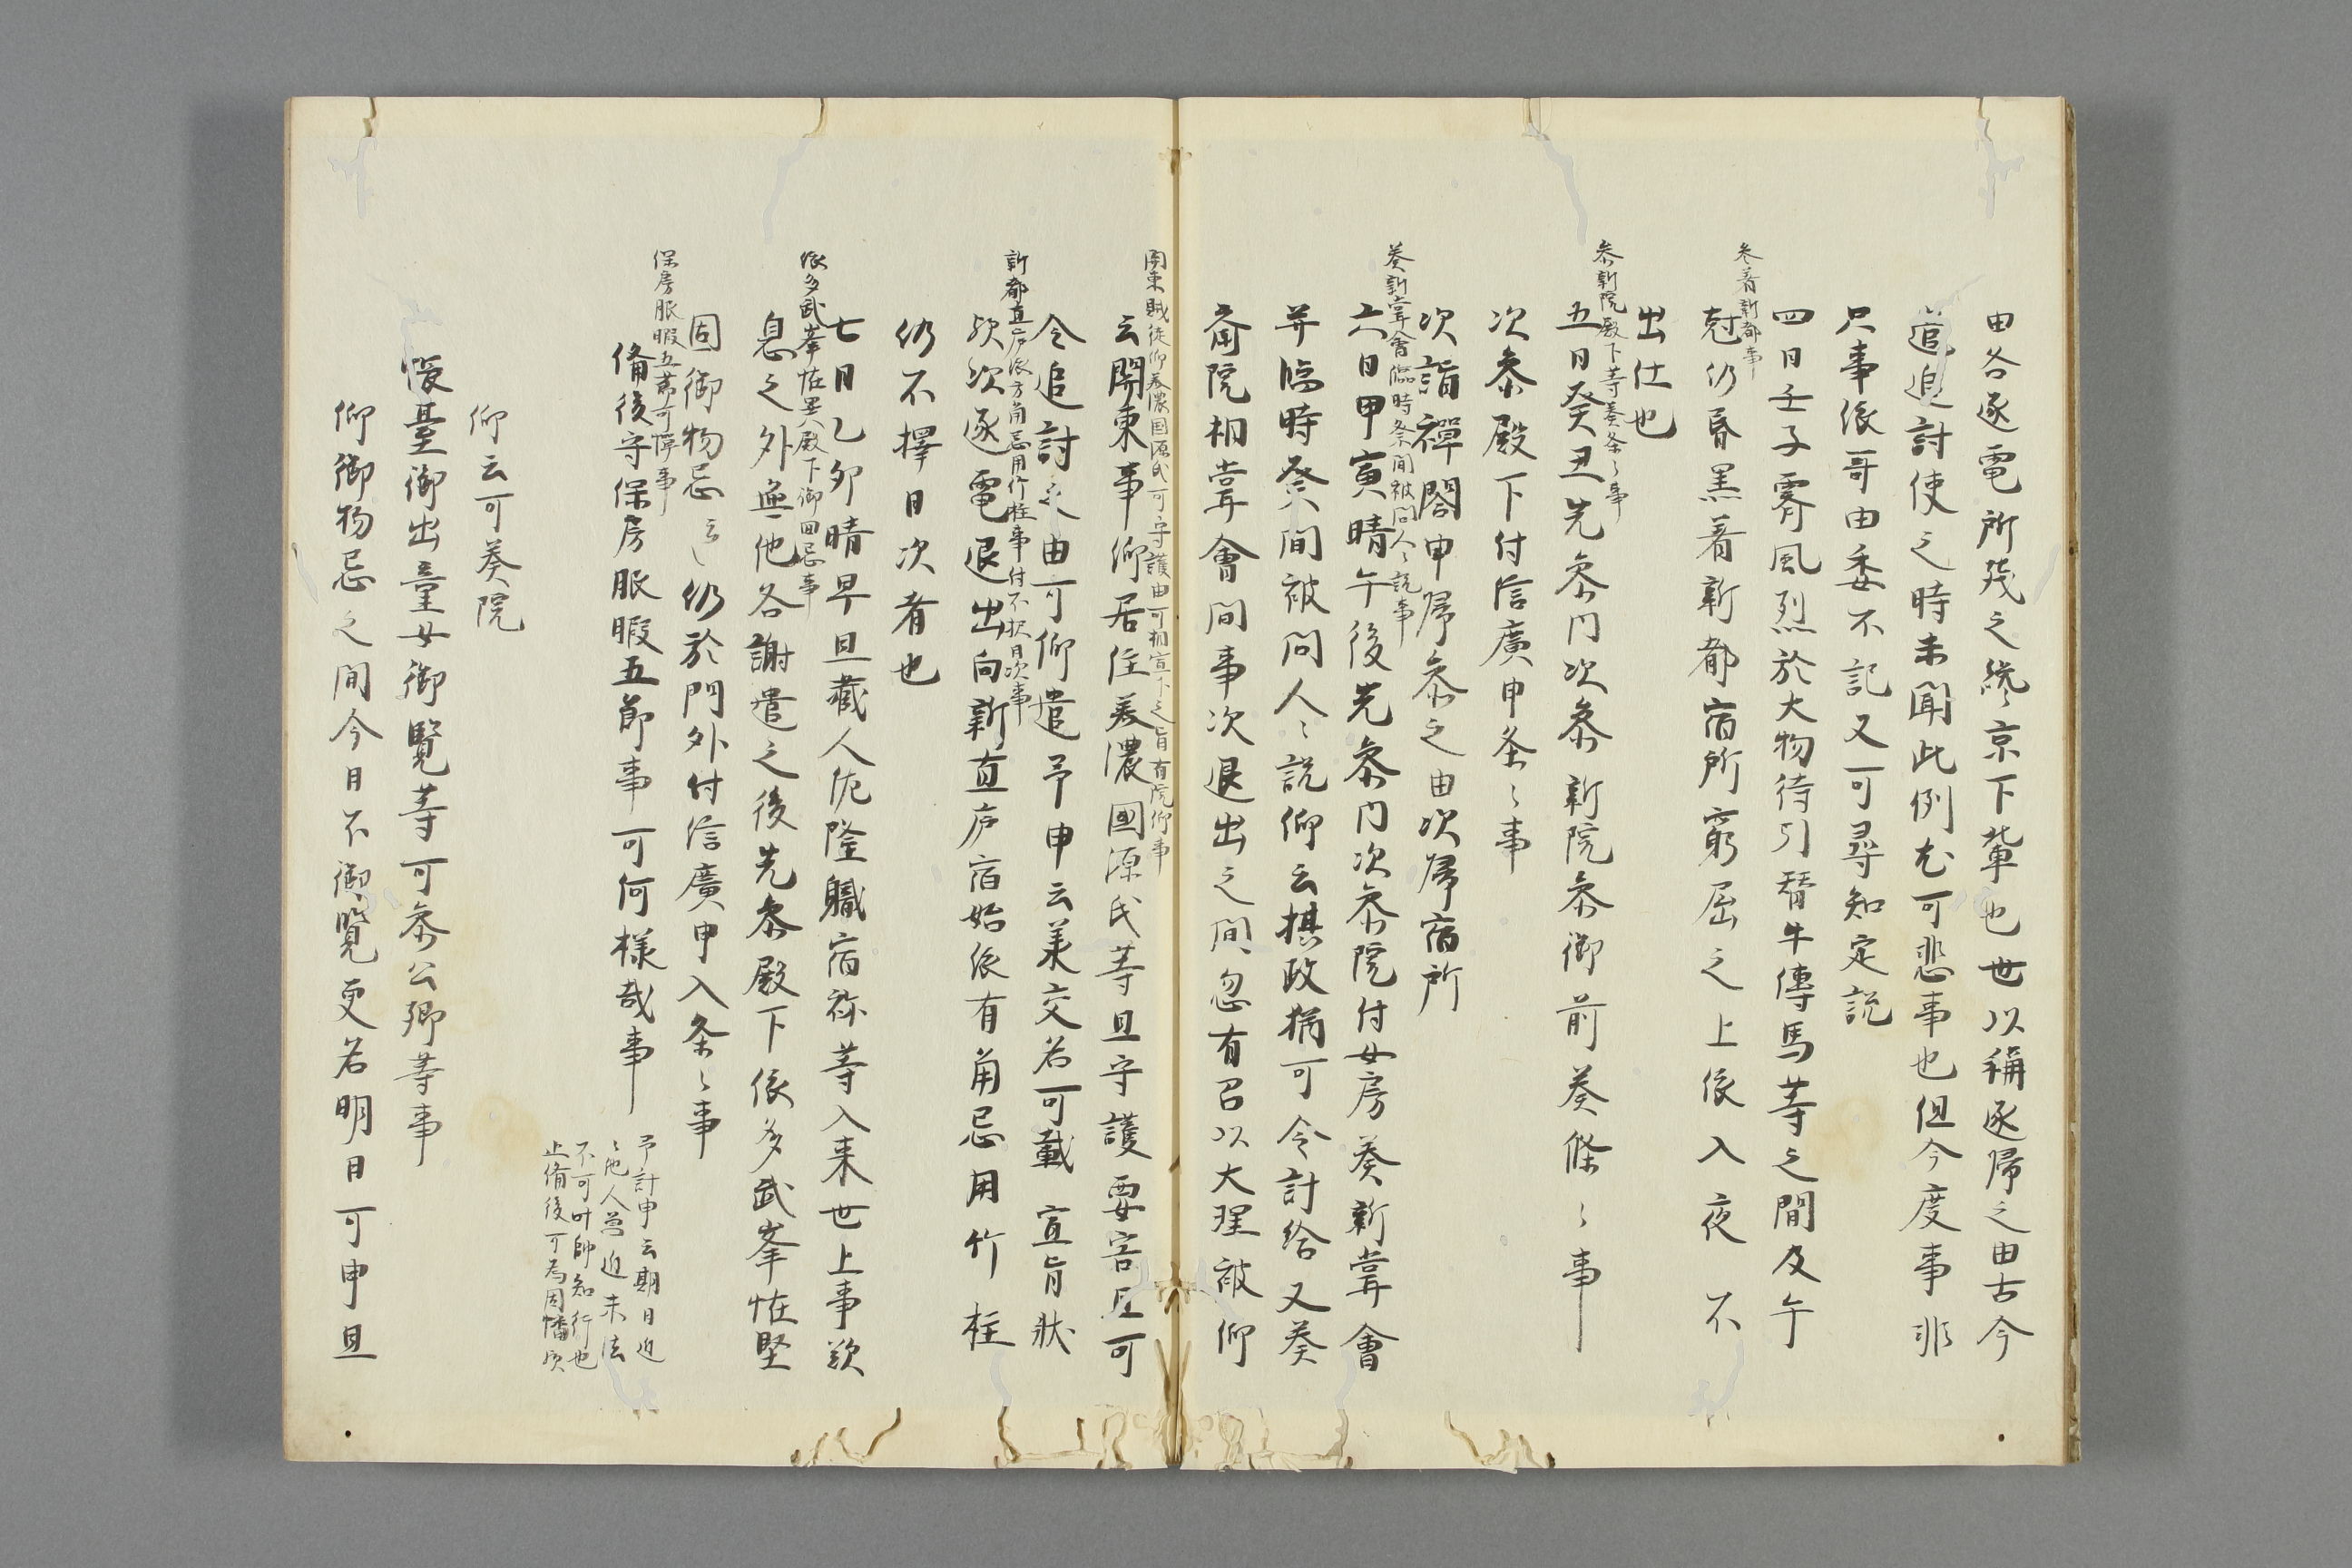 由各逐電所残之纔京下輩也世以稱逐帰之由古今
追討使之時未聞此例尤可悲事也但今度事非
只事依哥由委不記又可尋知定説
参着新都事
四日壬子霽風烈於大物待引替牛傳馬等之間及午
尅仍昏黒着新都宿所窮屈之上依入夜不
出仕也
参新院殿下等奏条々事
五日癸丑先参門次参新院参御前奏條々事
次参殿下付信廣申条々事
次詣禪閤申帰参之由次帰宿所
奏新嘗會臨時祭間被問人々説事
六日甲寅晴午後先参内次参院付女房奏新嘗會
并臨時祭間被問人々説仰云摂政猶可令計給又奏
齋院相嘗會間事次退出之間忽有召以大理被仰
関東賊徒仰美濃国源氏可守護由可相宣下之旨有院仰事
云関東事仰居住美濃國源氏等且守護要害且可
令追討之由可仰遣予申云美交名可載宣旨状
新都直庐依方角忌用竹柱事付不択日次事
欤次逐電退出向新直庐宿始依有角忌用竹柱
仍不擇日次者也
七日乙卯晴早旦蔵人佐隆職宿祢等入来世上事歎
依多武峯恠異殿下御固忌事
息之外無他各謝遣之後先参殿下依多武峯恠堅
固御物忌云々仍於門外付信廣申入条々事
保房服暇五節可憚事
備後守保房服暇五節事可何様哉事
予計申云期日迫
々他人忽迫未法
不可叶帥知行也
止備後可為因幡欤
仰云可奏院
帳臺御出童女御覧等可参公卿等事
仰御物忌之間今日不御覧更若明日可申且